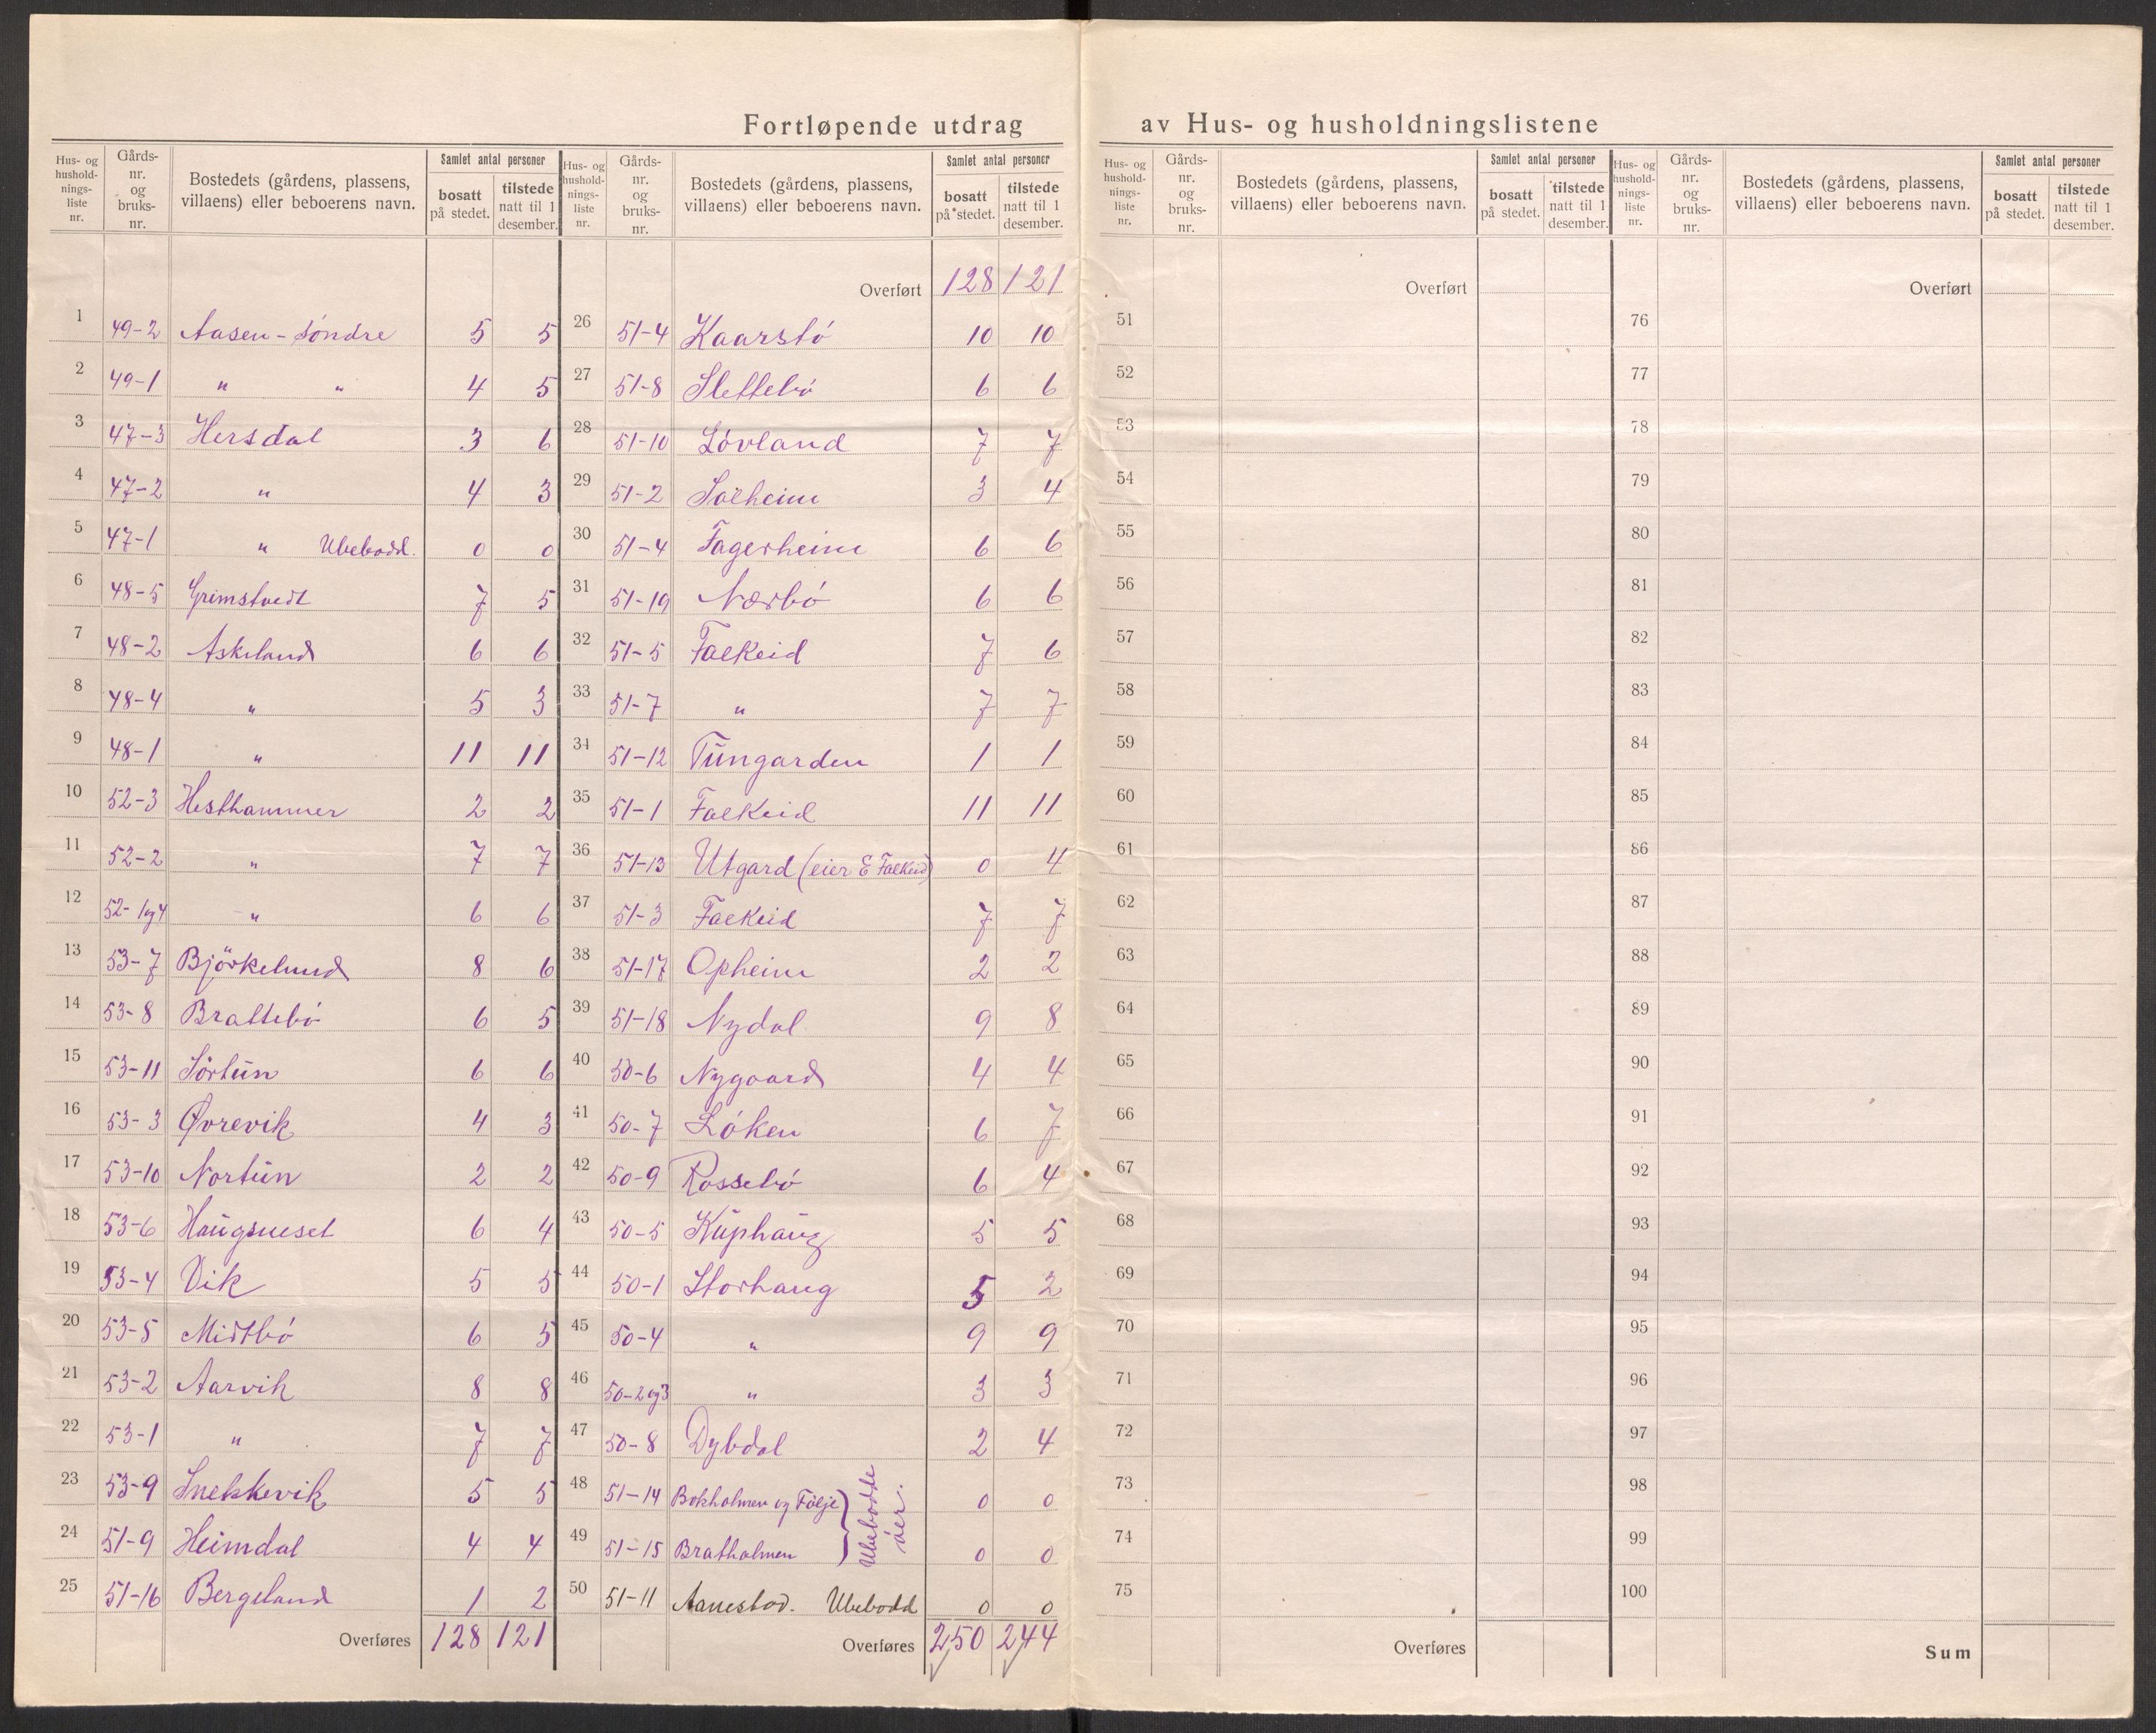 Fortløpende utdrag av Hus- og husholdningslistene
Hus- og husholdningsliste nr. | Gårds- nr. og bruks- nr. | Bostedets (gårdens, plassens, villaens) eller beboerens navn. | Samlet antal personer bosatt på stedet. | tilstede natt til 1 desember.
1 49-2 Aasen-Söndre 5 5
2 49-1 " " 4 5
3 47-3 Hersdal 3 6
4 47-2 " 4 3
5 47-1 " Ubebodd. 0 0
6 48-5 Grimstvedt 7 5
7 48-2 Askeland 6 6
8 48-4 " 5 3
9 48-1 " 11 11
10 52-3 Hesthammer 2 2
11 52-2 " 7 7
12 52-1og4 " 6 6
13 53-7 Björkelund 8 6
14 53-8 Brattebó 6 5
15 53-11 Sörtun 6 6
16 53-3 Øvrevik 4 3
17 53-10 Nortun 2 2
18 53-6 Haugsneset 6 4
19 53-4 Vik 5 5
20 53-5 Midtbó 6 5
21 53-2 Aarvik 8 8
22 53-1 " 7 7
23 53-9 Snekkevik 5 5
24 51-9 Heimdal 4 4
25 51-16 Bergeland 1 2
Overføres 128 121
Hus- og husholdningsliste nr. | Gårds- nr. og bruks- nr. | Bostedets (gårdens, plassens, villaens) eller beboerens navn. | Samlet antal personer bosatt på stedet. | tilstede natt til 1 desember.
Overført 128 121
26 51-4 Kaarstó 10 10
27 51-8 Slettebó 6 6
28 51-10 Lóvland 7 7
29 51-2 Solheim 3 4
30 51-4 Fagerheim 6 6
31 51-19 Nærbó 6 6
32 51-5 Falkeid 7 6
33 51-7 " 7 7
34 51-12 Tungarden 1 1
35 51-1 Falkeid 11 11
36 51-13 Utgard (eier E Falkeid) 0 4
37 51-3 Falkeid 7 7
38 51-17 Opheim 2 2
39 51-18 Nydal 9 8
40 50-6 Nygaard 4 4
41 50-7 Lóken 6 7
42 50-9 Rossebó 6 4
43 50-5 Kuphaug 5 5
44 50-1 Storhaug 5 2
45 50-4 " 9 9
46 50-2og3 " 3 3
47 50-8 Dybdal 2 4
48 51-14 Bokholmen og Följe 0 0
49 51-15 Bratholmen 0 0
Ubebodde óer.
50 51-11 Aanestad. Ubebodd 0 0
Overføres 250 244
Hus- og husholdningsliste nr. | Gårds- nr. og bruks- nr. | Bostedets (gårdens, plassens, villaens) eller beboerens navn. | Samlet antal personer bosatt på stedet. | tilstede natt til 1 desember.
Overført
51
52
53
54
55
56
57
58
59
60
61
62
63
64
65
66
67
68
69
70
71
72
73
74
75
Overføres
Hus- og husholdningsliste nr. | Gårds- nr. og bruks- nr. | Bostedets (gårdens, plassens, villaens) eller beboerens navn. | Samlet antal personer bosatt på stedet. | tilstede natt til 1 desember.
Overført
76
77
78
79
80
81
82
83
84
85
86
87
88
89
90
91
92
93
94
95
96
97
98
99
100
Sum